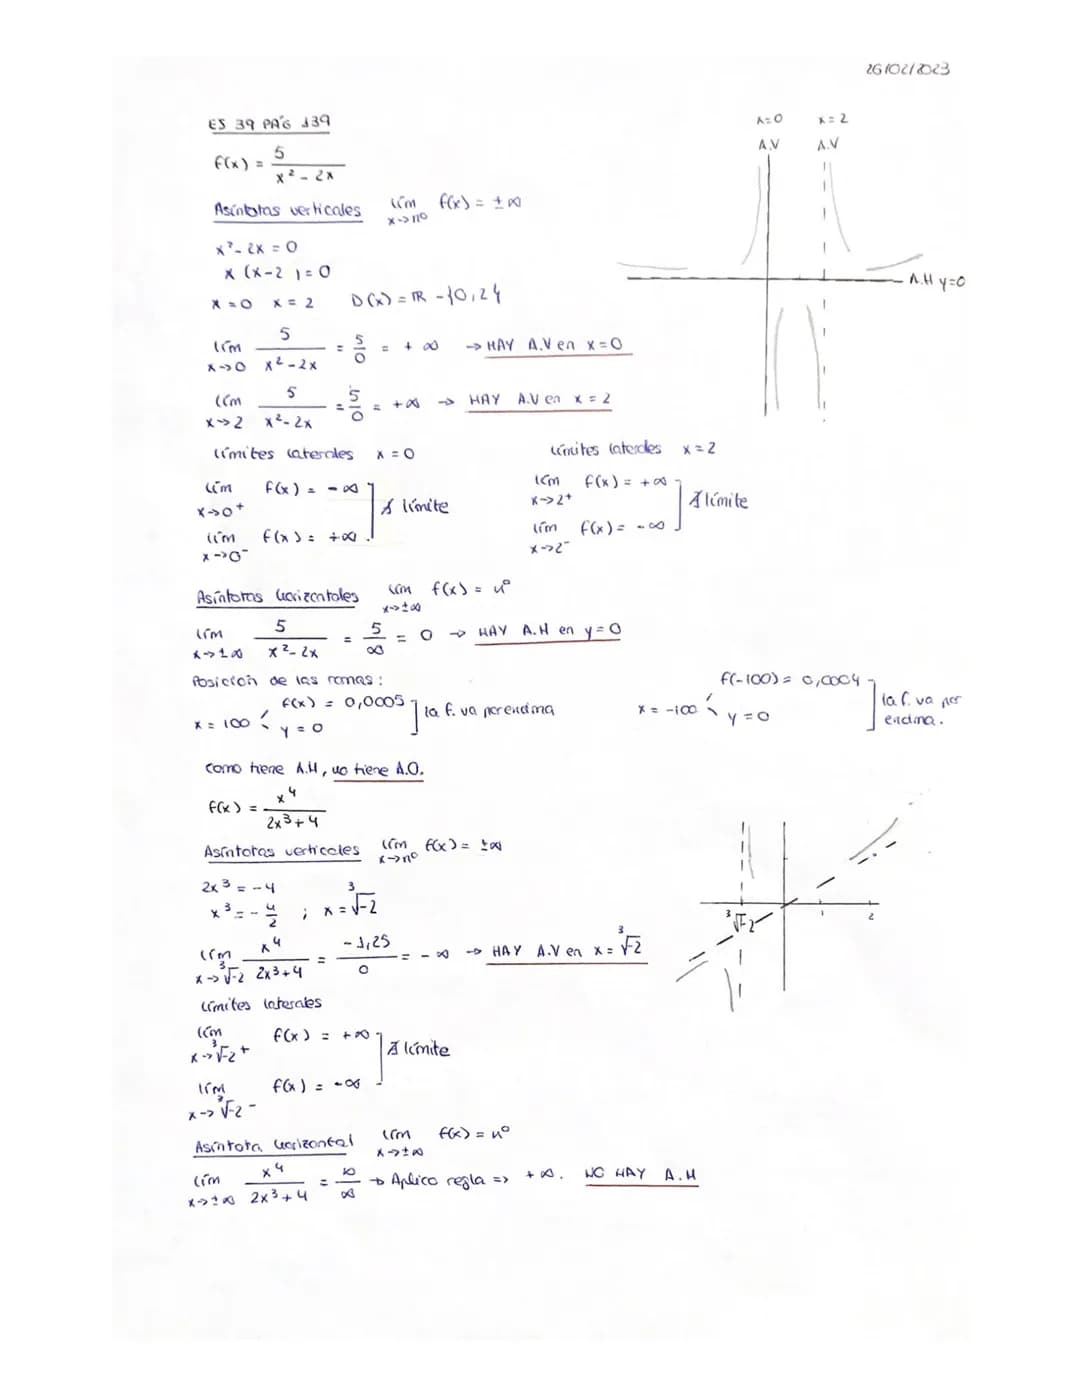 26/02/2023
EJ 39 PÁG 139
f(x) = 5 / x² - 2x
Asíntotas verticales lím x->nº f(x) = ±∞
x² - 2x = 0
x (x-2) = 0
x = 0 x = 2 D(x) = ℝ - {0, 2}
lím x->0 5 / x² - 2x = 5/0 = +∞ -> HAY A.V en x=0
lím x->2 5 / x² - 2x = 5/0 = +∞ -> HAY A.V en x = 2
límites laterales x = 0
lím x->0+ f(x) = -∞
∄ límite
lím x->0- f(x) = +∞
límites laterales x = 2
lím x->2+ f(x) = +∞
∄ límite
lím x->2- f(x) = -∞
x=0 x=2
A.V A.V
A.H y=0
Asíntotas horizontales lím x->±∞ f(x) = nº
lím x->±∞ 5 / x² - 2x = 5/∞ = 0 -> HAY A.H en y = 0
Posición de las ramas:
x = 100 f(x) = 0,0005 y = 0 la f. va por encima
x = -100 f(-100) = 0,0004 y = 0 la f. va por encima.
Como tiene A.H, no tiene A.O.
f(x) = x⁴ / 2x³ + 4
Asíntotas verticales lím x->nº f(x) = ±∞
2x³ = -4
x³ = - 4/2 ; x = ³√-2
lím x->³√-2 x⁴ / 2x³+4 = -1,25 / 0 = -∞ -> HAY A.V en x = ³√-2
límites laterales
lím x->³√-2+ f(x) = +∞
∄ límite
lím x->³√-2- f(x) = -∞
³√-2 1 2
Asíntota horizontal lím x->±∞ f(x) = nº
lím x->±∞ x⁴ / 2x³ + 4 = ∞/∞ -> Aplico regla => +∞. NO HAY A.H